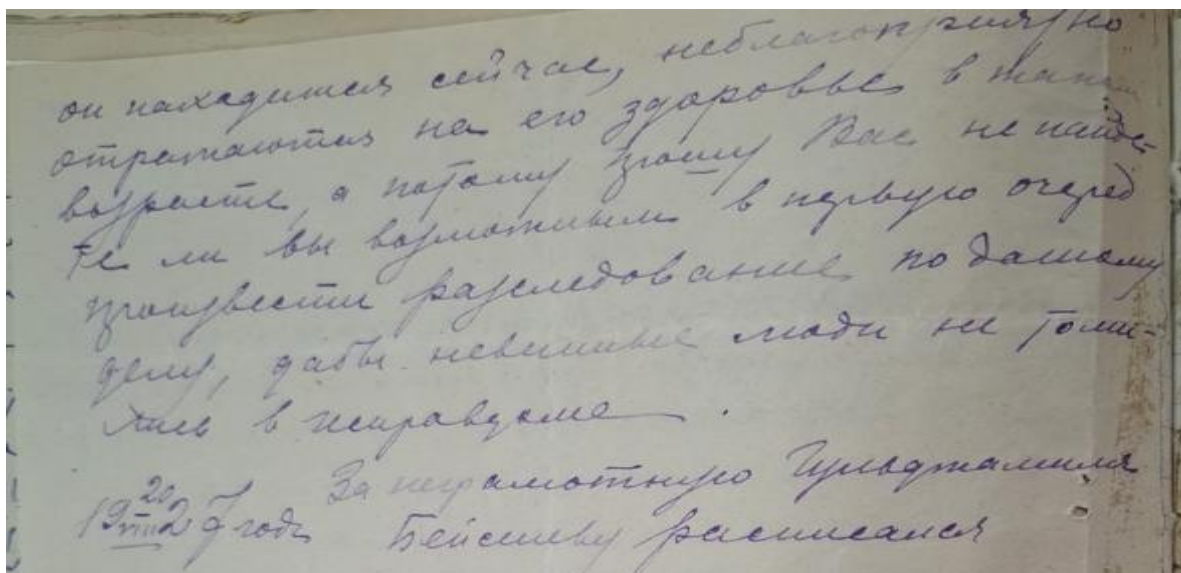 он находится сейчас, неблагоприятно
отражаются на его здоровье в таком
возрасте, а потому прошу Вас не найде-
те ли вы возможным в первую очеред
произвести расследование по данному
делу, дабы невинные люди не томи-
лись в исправдоме.
За неграмотную Гульджамиля
19 20/VIII 27 годы Бейсиеву расписался